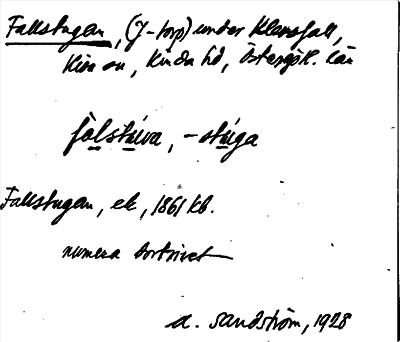 Fallstugan, (f-torp) under Klevsfall,
Kisa sn, Kinda hd, Östergötl. län
fàlstúva, -stúga
Fallstugan, ek, 1861 kb.
numera bortrivet
A. Sandström, 1928